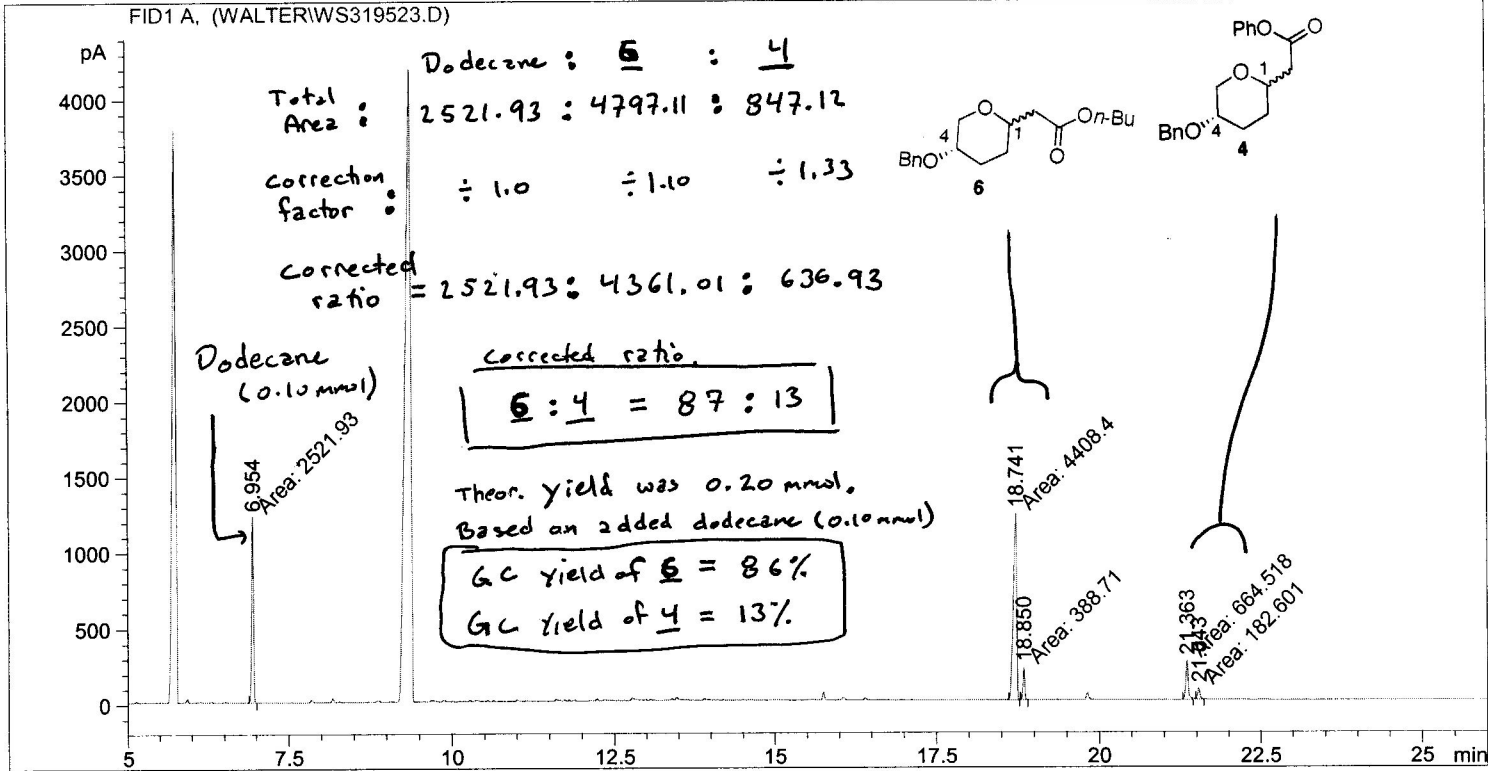 FID1 A, (WALTER\WS319523.D)
pA
4000
3500
3000
2500
2000
1500
1000
500
0
5
7.5
10
12.5
15
17.5
20
22.5
25
min
Dodecane : 6 : 4
Total Area : 2521.93 : 4797.11 : 847.12
correction factor : ÷ 1.0 ÷ 1.10 ÷ 1.33
Corrected ratio = 2521.93 : 4361.01 : 636.93
Dodecane
(0.10 mmol)
Corrected ratio.
6 : 4 = 87 : 13
Theor. yield was 0.20 mmol.
Based on added dodecane (0.10 mmol)
GC yield of 6 = 86%
GC yield of 4 = 13%
6.954
Area: 2521.93
18.741
Area: 4408.4
18.850
Area: 388.71
21.363
Area: 664.518
Area: 182.601
O
4
1
On-Bu
O
BnO
6
PhO
O
O
1
BnO
4
4